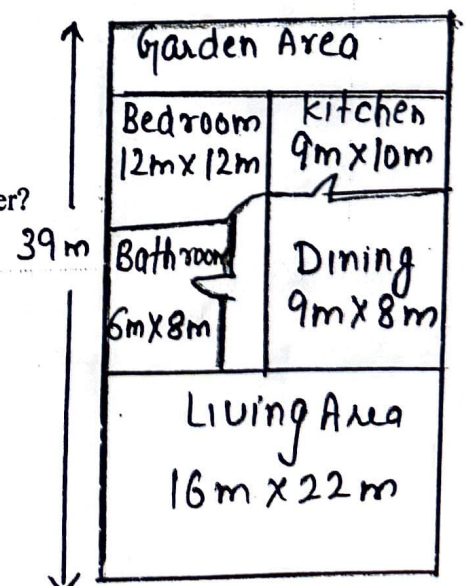 Garden Area
Bedroom
12m x 12m
Kitchen
9m x 10m
er?
39m
Bathroom
6m x 8m
Dining
9m x 8m
Living Area
16m x 22m